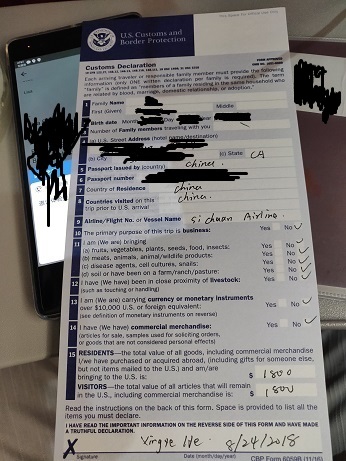 U.S. Customs and
Border Protection
Customs Declaration
FORM APPROVED
Each arriving traveler or responsible family member must provide the following
information (only ONE written declaration per family is required). The term
"family" is defined as "members of a family residing in the same household who
are related by blood, marriage, domestic relationship, or adoption."
1 Family Name
First (Given) Middle
2 Birth date Month Day
3 Number of Family members traveling with you
4 (a) U.S. Street Address (hotel name/destination)
(b) City (c) State CA
5 Passport issued by (country) china
6 Passport number
7 Country of Residence china
8 Countries visited on this
trip prior to U.S. arrival china
9 Airline/Flight No. or Vessel Name Sichuan Airline
10 The primary purpose of this trip is business: Yes No
11 I am (We are) bringing
(a) fruits, vegetables, plants, seeds, food, insects: Yes No
(b) meats, animals, animal/wildlife products: Yes No
(c) disease agents, cell cultures, snails: Yes No
(d) soil or have been on a farm/ranch/pasture: Yes No
12 I have (We have) been in close proximity of livestock: Yes No
(such as touching or handling)
13 I am (We are) carrying currency or monetary instruments
over $10,000 U.S. or foreign equivalent: Yes No
(see definition of monetary instruments on reverse)
14 I have (We have) commercial merchandise: Yes No
(articles for sale, samples used for soliciting orders,
or goods that are not considered personal effects)
15 RESIDENTS—the total value of all goods, including commercial merchandise
I/we have purchased or acquired abroad, (including gifts for someone else,
but not items mailed to the U.S.) and am/are
bringing to the U.S. is: $ 1800
VISITORS—the total value of all articles that will remain
in the U.S., including commercial merchandise is: $ 1800
Read the instructions on the back of this form. Space is provided to list all the
items you must declare.
I HAVE READ THE IMPORTANT INFORMATION ON THE REVERSE SIDE OF THIS FORM AND HAVE MADE
A TRUTHFUL DECLARATION.
X 8/24/2018
Signature Date (month/day/year)
CBP Form 6059B (11/16)